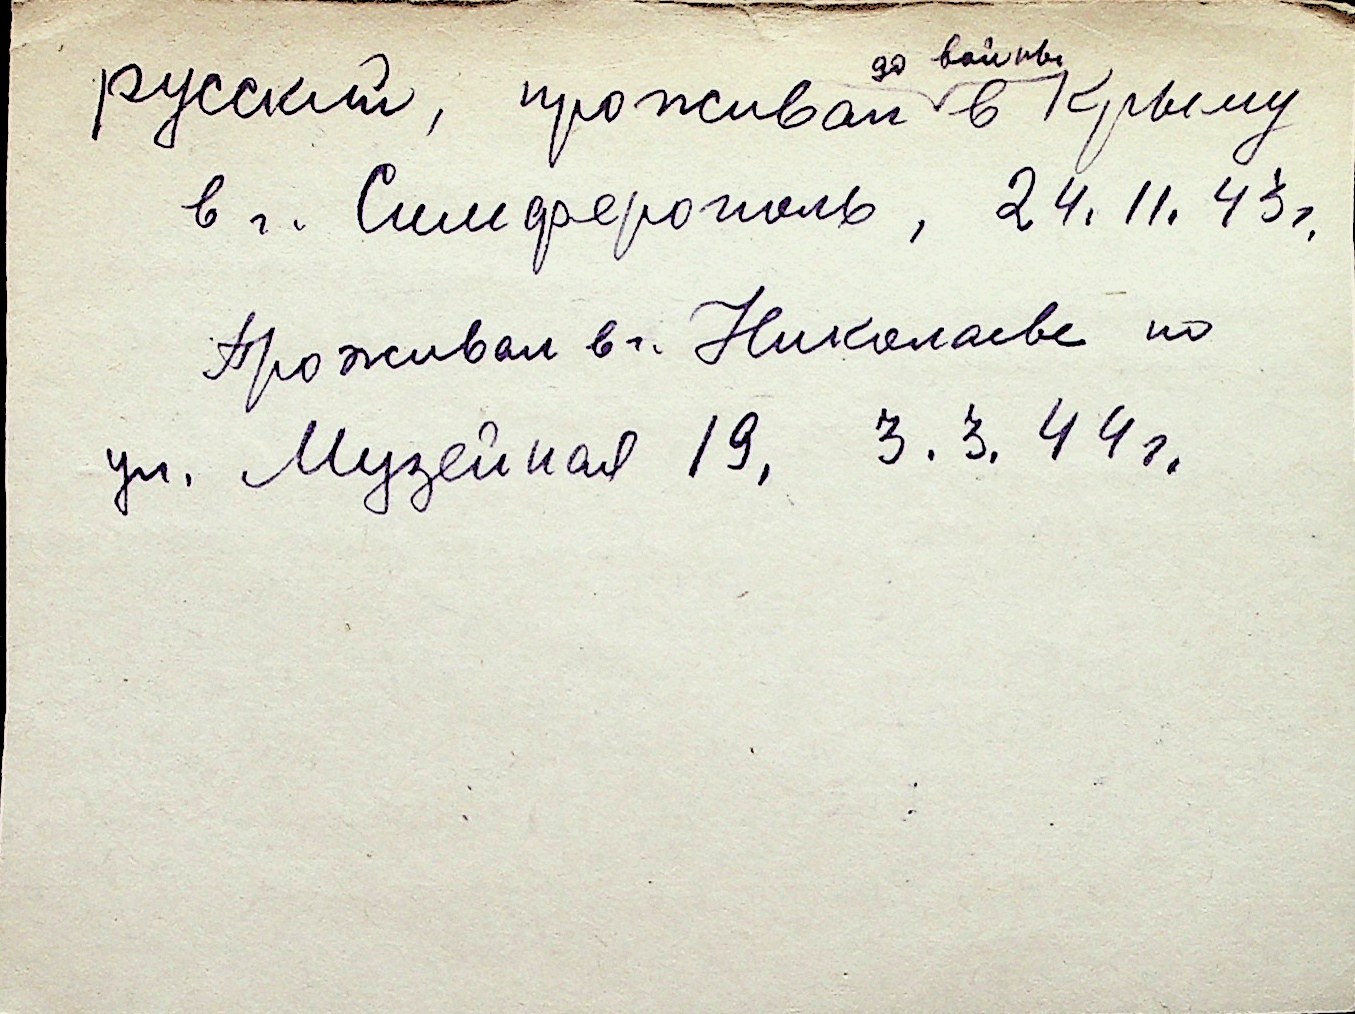 до войны
русский, проживал в Крыму
в г. Симферополь, 24.11.43г.
Проживал в г. Николаеве по
ул. Музейная 19, 3.3.44г.